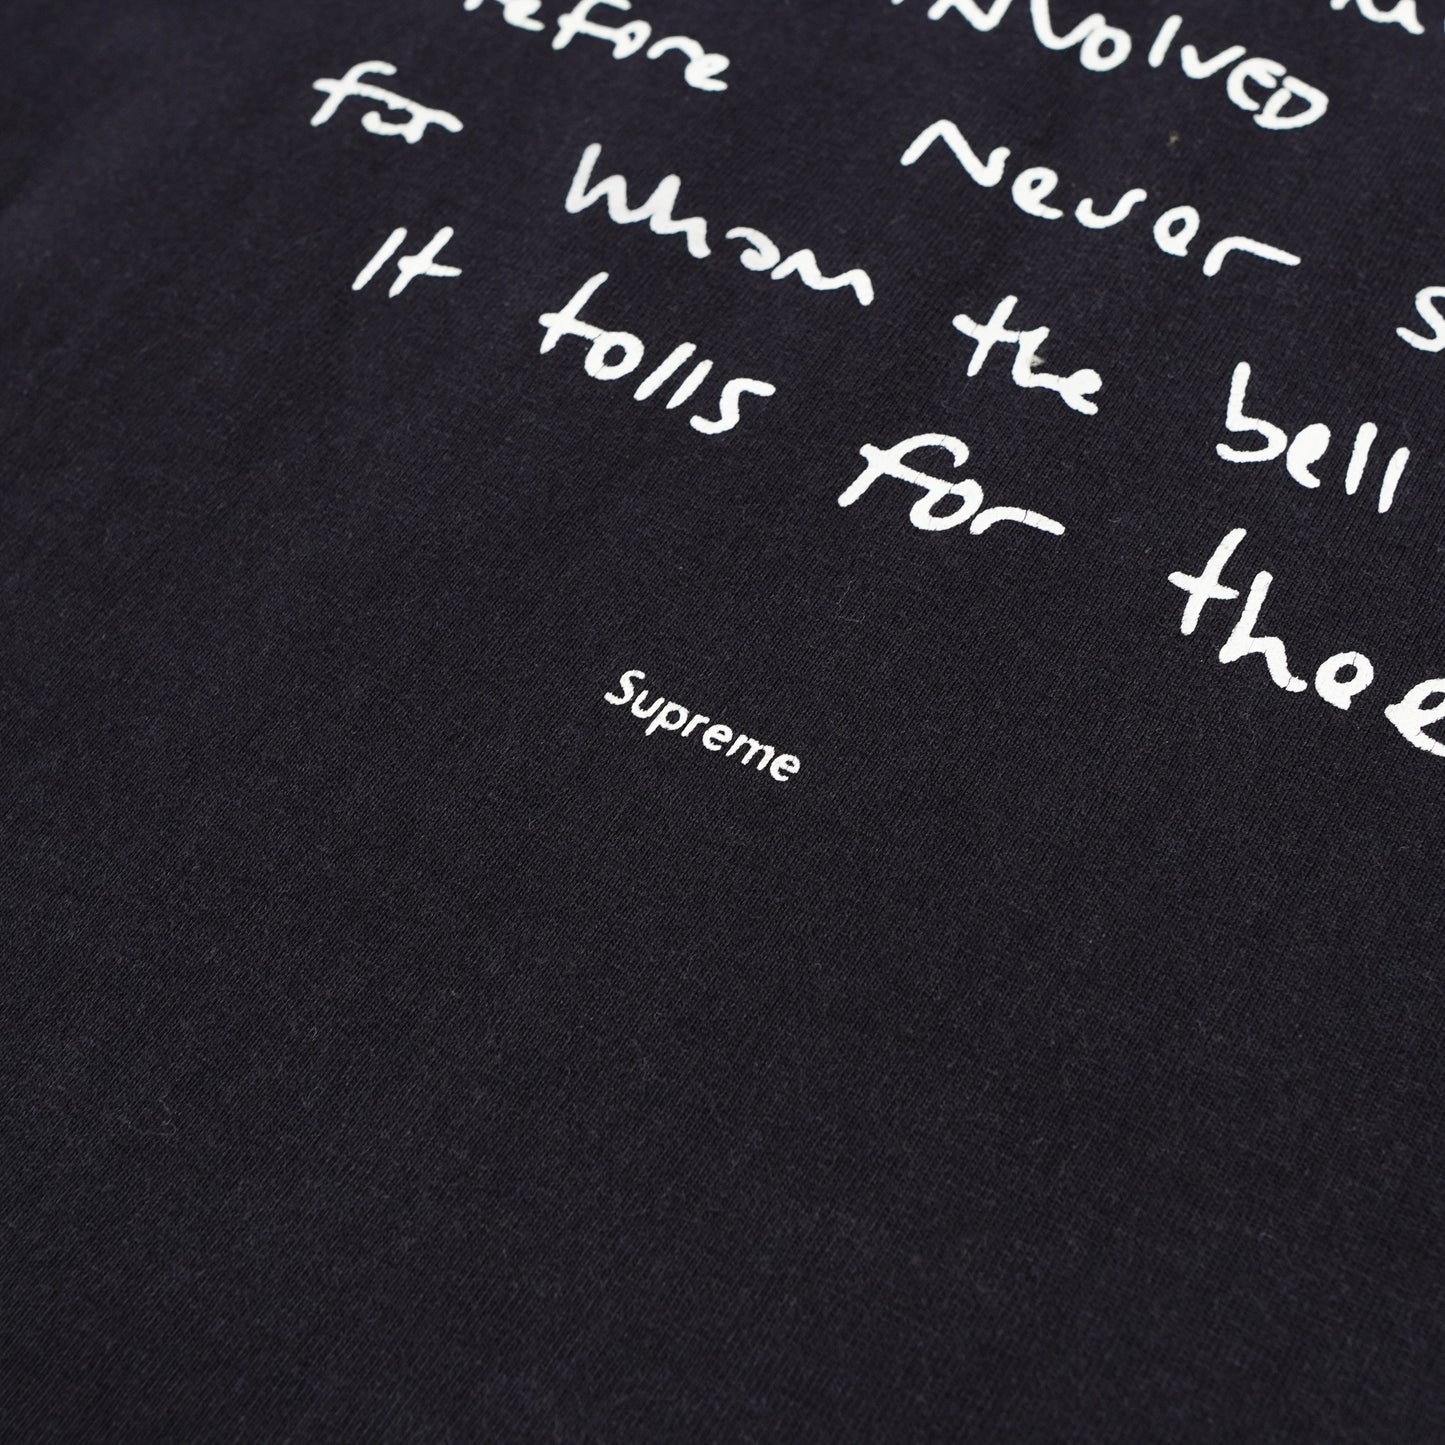 INVOLVED
refore Never s
for whom the bell
It tolls for thee
Supreme